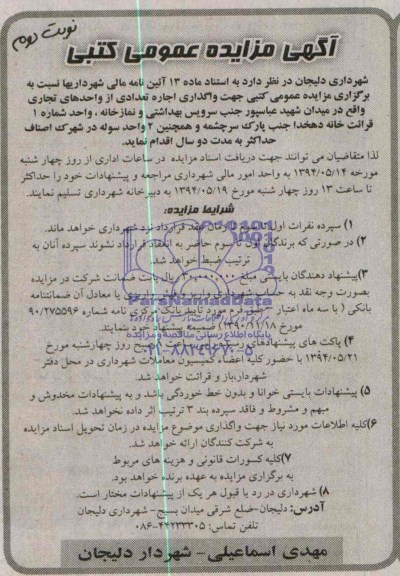 نوبت دوم
آگهی مزایده عمومی کتبی
شهرداری دلیجان در نظر دارد به استناد ماده ۱۳ آئین نامه مالی شهرداریها نسبت به
برگزاری مزایده عمومی کتبی جهت واگذاری اجاره تعدادی از واحدهای تجاری
واقع در میدان شهید عباسپور جنب سرویس بهداشتی و نمازخانه ، واحد شماره ۱
قرائت خانه دهخدا جنب پارک سرچشمه و همچنین ۲ واحد سوله در شهرک اصناف
حداکثر به مدت دو سال اقدام نماید.
لذا متقاضیان می توانند جهت دریافت اسناد مزایده در ساعات اداری از روز چهار شنبه
مورخه ۱۳۹۴/۰۵/۱۴ به واحد امور مالی شهرداری مراجعه و پیشنهادات خود را حداکثر
تا ساعت ۱۳ روز چهار شنبه مورخ ۱۳۹۴/۰۵/۱۹ به دبیرخانه شهرداری تسلیم نمایند.
شرایط مزایده:
۱) سپرده نفرات اول تا سوم تا زمان عقد قرارداد نزد شهرداری خواهد ماند.
۲) در صورتی که برندگان اول تا سوم حاضر به انعقاد قرارداد نشوند سپرده آنان به
ترتیب ضبط خواهد شد.
۳)پیشنهاد دهندگان بایستی مبلغ ریال بابت ضمانت شرکت در مزایده
بصورت وجه نقد به حساب شهرداری واریز یا معادل آن ضمانتنامه
بانکی ( با سه ماه اعتبار طبق فرم مورد تایید بانک مرکزی نامه شماره ۹۰/۲۷۵۵۹۶
مورخ ۱۳۹۰/۱۱/۱۸) ضمیمه پیشنهاد خود نمایند.
۴) پاکت های پیشنهادهای صبح روز چهارشنبه مورخ
۱۳۹۴/۰۵/۲۱ با حضور کلیه اعضاء کمیسیون معاملات شهرداری در محل دفتر
شهردار،باز و قرائت خواهد شد.
۵) پیشنهادات بایستی خوانا و بدون خط خوردگی باشد و به پیشنهادات مخدوش و
مبهم و مشروط و فاقد سپرده بند ۳ ترتیب اثر داده نخواهد شد.
۶)کلیه اطلاعات مورد نیاز جهت واگذاری موضوع مزایده در زمان تحویل اسناد مزایده
به شرکت کنندگان ارائه خواهد شد.
۷)کلیه کسورات قانونی و هزینه های مربوط
به برگزاری مزایده به عهده برنده خواهد بود.
۸) شهرداری در رد یا قبول هر یک از پیشنهادات مختار است.
آدرس: دلیجان-ضلع شرقی میدان بسیج- شهرداری دلیجان
تلفن تماس: ۴۴۲۳۳۳۰۵-۰۸۶
مهدی اسماعیلی - شهردار دلیجان
ParsNamadData
پایگاه اطلاع رسانی مناقصه و مزایده
۰۲۱-۸۸۳۴۹۶۷۰-۵